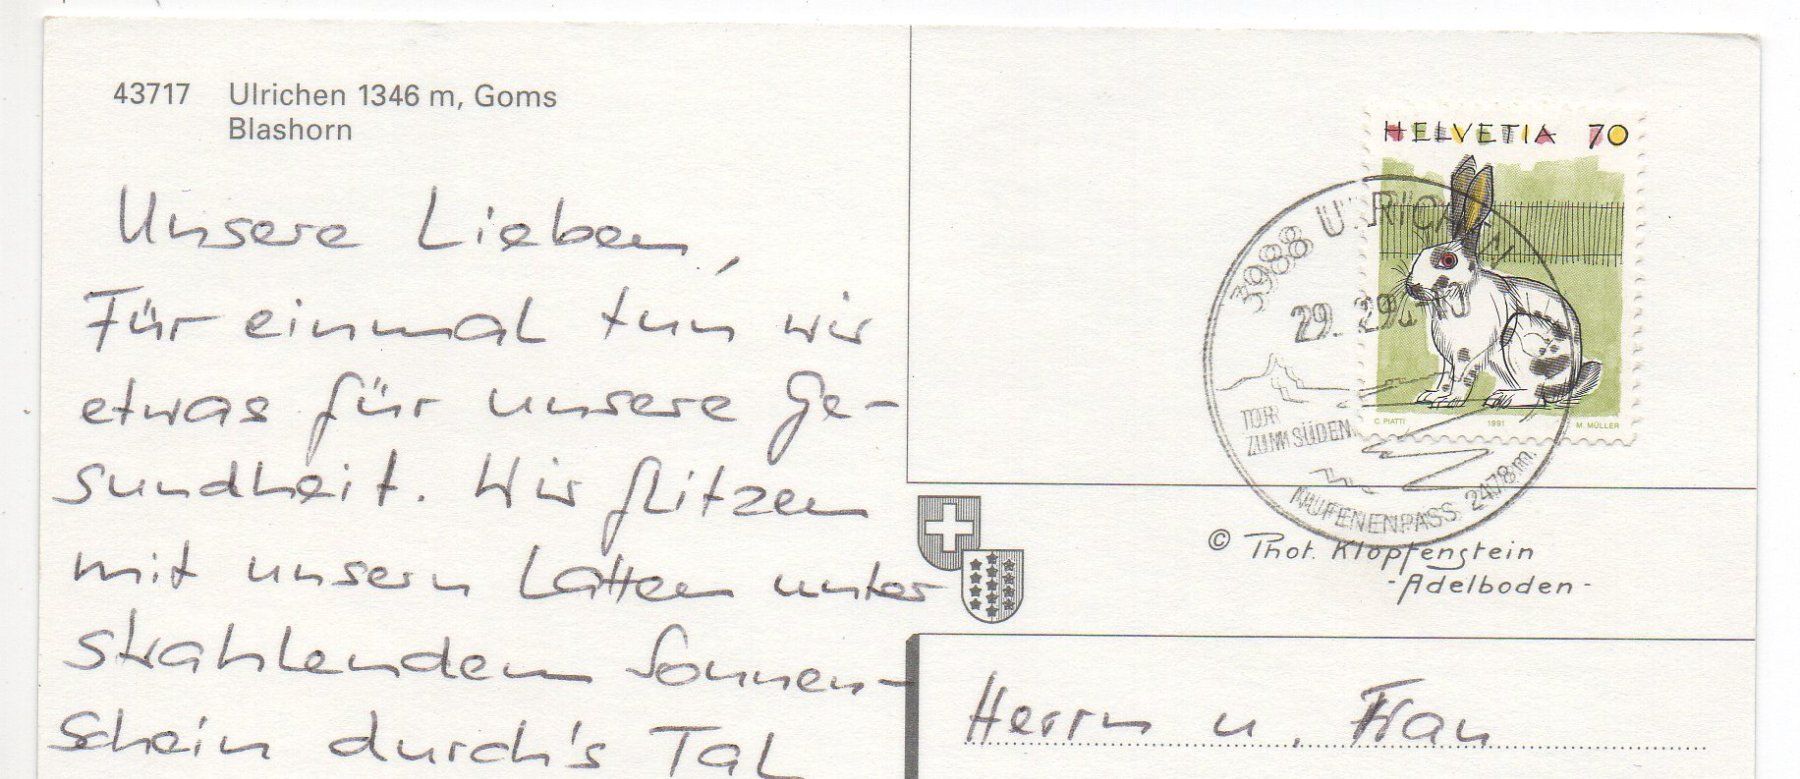 43717 Ulrichen 1346 m, Goms
Blashorn
Unsere Lieben,
Für einmal tun wir
etwas für unsere Ge-
sundheit. Wir flitzen
mit unsern Latten unter
strahlendem Sonnen-
schein durch's Tal
HELVETIA 70
C. PIATTI 1991 M. MÜLLER
3988 ULRICHEN
29.
TOR
ZUM SÜDEN
NUFENENPASS 2478 m.
© Phot. Klopfenstein
- Adelboden -
Herrn u. Frau